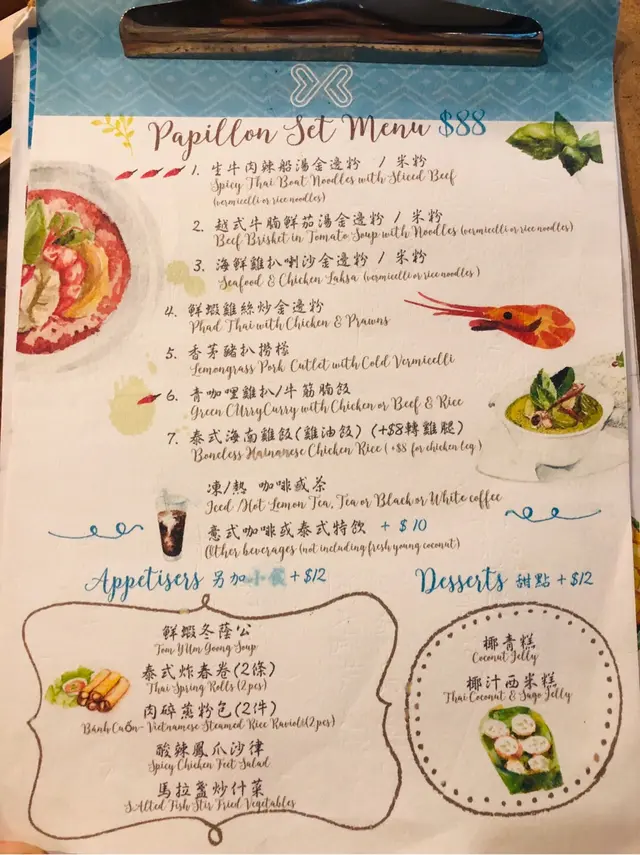 Papillon Set Menu $88
1. 生牛肉辣船湯金邊粉 / 米粉
Spicy Thai Boat Noodles with Sliced Beef
(vermicelli or rice noodles)
2. 越式牛腩鮮茄湯金邊粉 / 米粉
Beef Brisket in Tomato Soup with Noodles (vermicelli or rice noodles)
3. 海鮮雞扒喇沙金邊粉 / 米粉
Seafood & Chicken Laksa (vermicelli or rice noodles)
4. 鮮蝦雞絲炒金邊粉
Phad Thai with Chicken & Prawns
5. 香茅豬扒撈檬
Lemongrass Pork Cutlet with Cold Vermicelli
6. 青咖哩雞扒/牛筋腩飯
Green CUrryCurry with Chicken or Beef & Rice
7. 泰式海南雞飯(雞油飯) (+$8轉雞腿)
Boneless Hainanese Chicken Rice (+$8 for chicken leg)
凍/熱 咖啡或茶
Iced /Hot Lemon Tea, Tea or Black or White coffee
意式咖啡或泰式特飲 + $10
(Other beverages (not including fresh young coconut)
Appetisers 另加小食 +$12
鮮蝦冬蔭公
Tom YUm Goong Soup
泰式炸春卷(2條)
Thai Spring Rolls (2pcs)
肉碎蒸粉包(2件)
Bánh Cuốn- Vietnamese Steamed Rice Ravioli(2pcs)
酸辣鳳爪沙律
Spicy Chicken Feet Salad
馬拉盞炒什菜
SAlted Fish Stir Fried Vegetables
Desserts 甜點 +$12
椰青糕
Coconut Jelly
椰汁西米糕
Thai Coconut & Sago Jelly